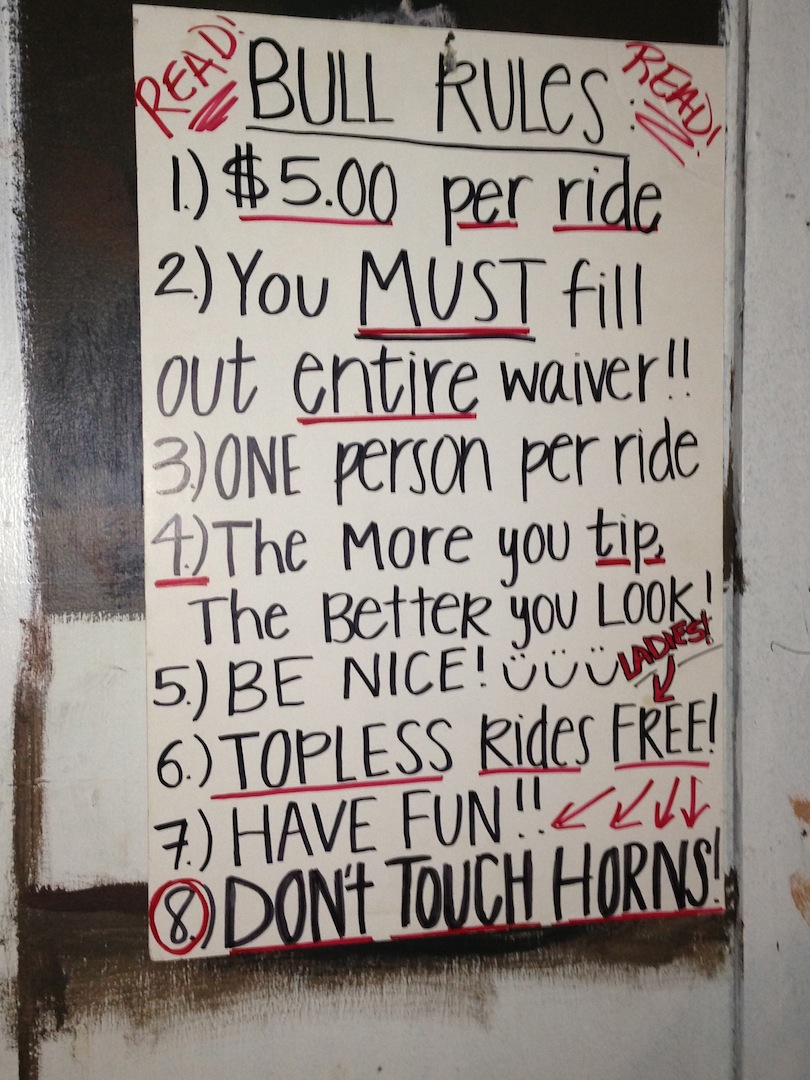 READ! BULL RULES: READ!
1.) $5.00 per ride
2.) You MUST fill
out entire waiver!!
3.) ONE person per ride
4.) The More you tip,
The Better you LOOK!
5.) BE NICE! Ü Ü Ü LADIES!
6.) TOPLESS Rides FREE!
7.) HAVE FUN!!
8.) DON't TOUCH HORNS!